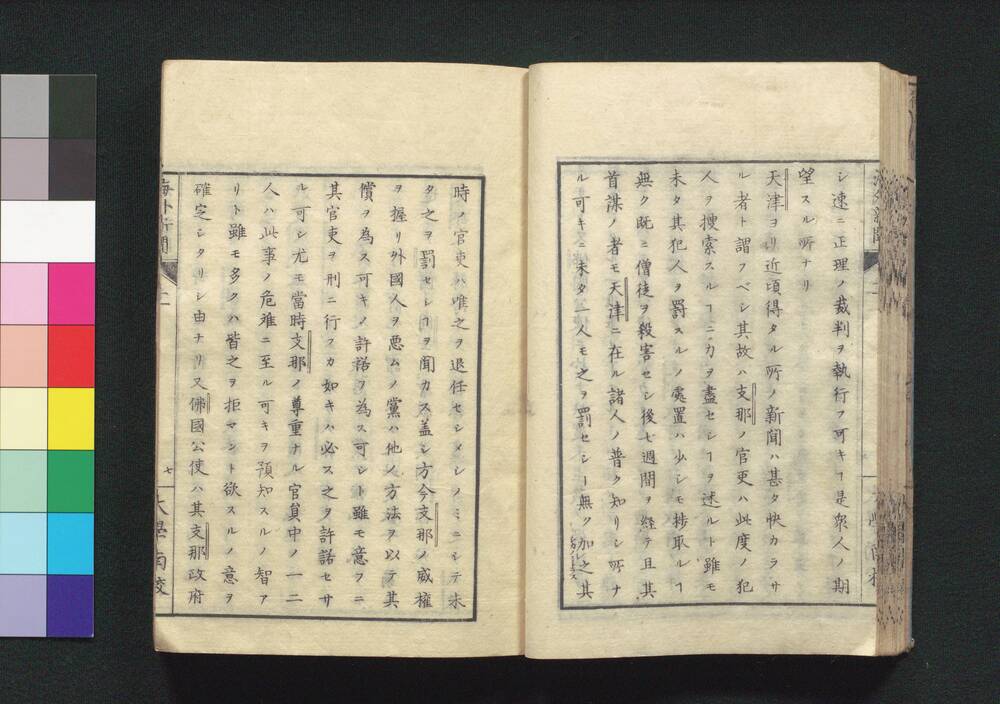 シ速ニ正理ノ裁判ヲ執行フ可キヿ是衆人ノ期
望スル所ナリ
天津ヨリ近頃得タル所ノ新聞ハ甚タ快カラサ
ル者ト謂フベシ其故ハ支那ノ官吏ハ此度ノ犯
人ヲ捜索スルヿニ力ヲ盡セシヿヲ述ルト雖モ
未タ其犯人ヲ罰スルノ處置ハ少シモ捗取ルヿ
無ク既ニ僧徒ヲ殺害セシ後七週間ヲ経テ且其
首謀ノ者モ天津ニ在ル諸人ノ普ク知リシ所ナ
ル可キニ未タ一人モ之ヲ罰セシヿ無ク加之其
時ノ官吏ハ唯之ヲ退任セシメシノミニシテ未
タ之ヲ罰セシヿヲ聞カス盖シ方今支那ノ威權
ヲ握リ外國人ヲ悪ムノ黨ハ他ノ方法ヲ以テ其
償ヲ為ス可キノ許諾ヲ為ス可シト雖モ意フニ
其官吏ヲ刑ニ行フカ如キハ必ス之ヲ許諾セサ
ル可シ尤モ當時支那ノ尊重ナル官員中ノ一二
人ハ此事ノ危难ニ至ル可キヲ預知スルノ智ア
リト雖モ多クハ皆之ヲ拒マント欲スルノ意ヲ
確定シタリシ由ナリ又佛國公使ハ其支那政府
海外新聞
二
七
大學南校